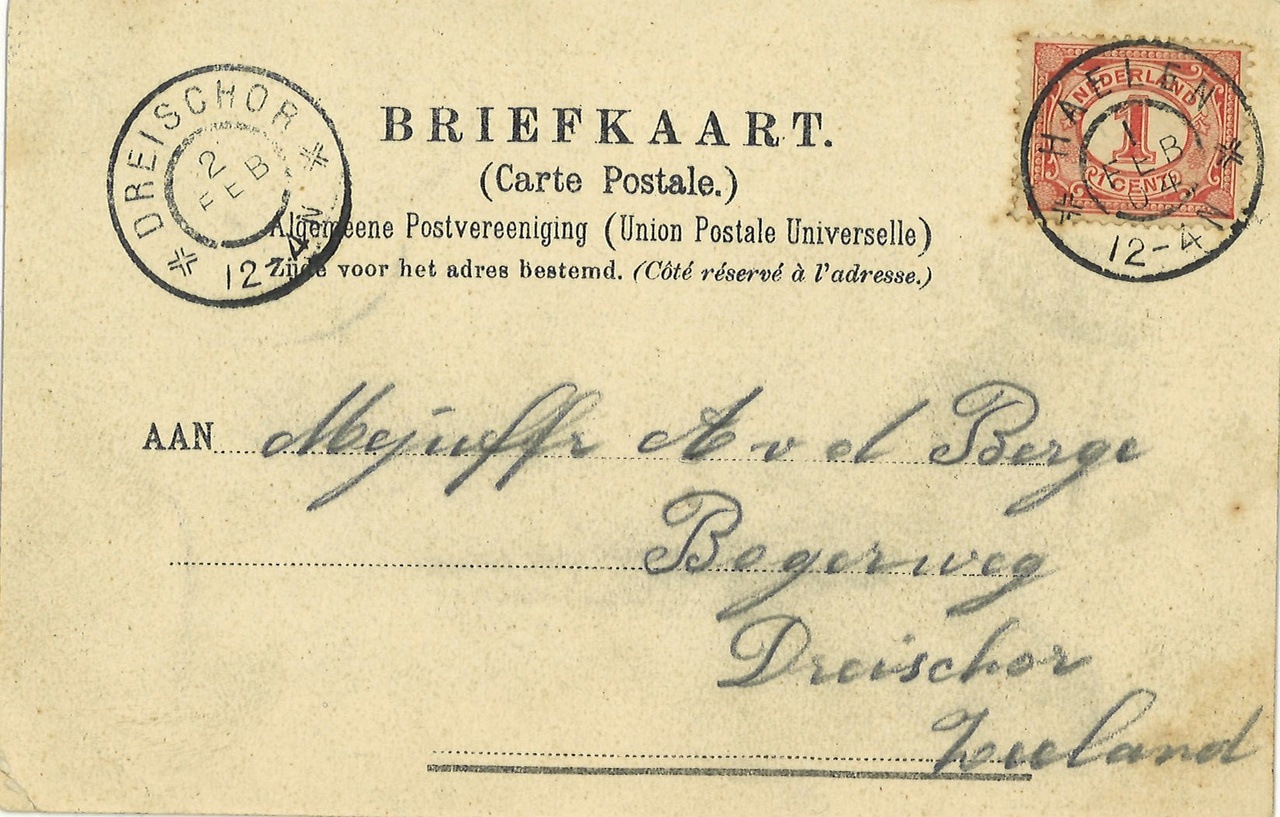 DREISCHOR
2
FEB
12-4N
BRIEFKAART.
(Carte Postale.)
Algemeene Postvereeniging (Union Postale Universelle)
Zijde voor het adres bestemd. (Côté réservé à l'adresse.)
NEDERLAND
1
1 CENT
HAELEN
1
FEB
04
12-4N
AAN Mejuffr A v d Berge
Bogerweg
Dreischor
Zeeland